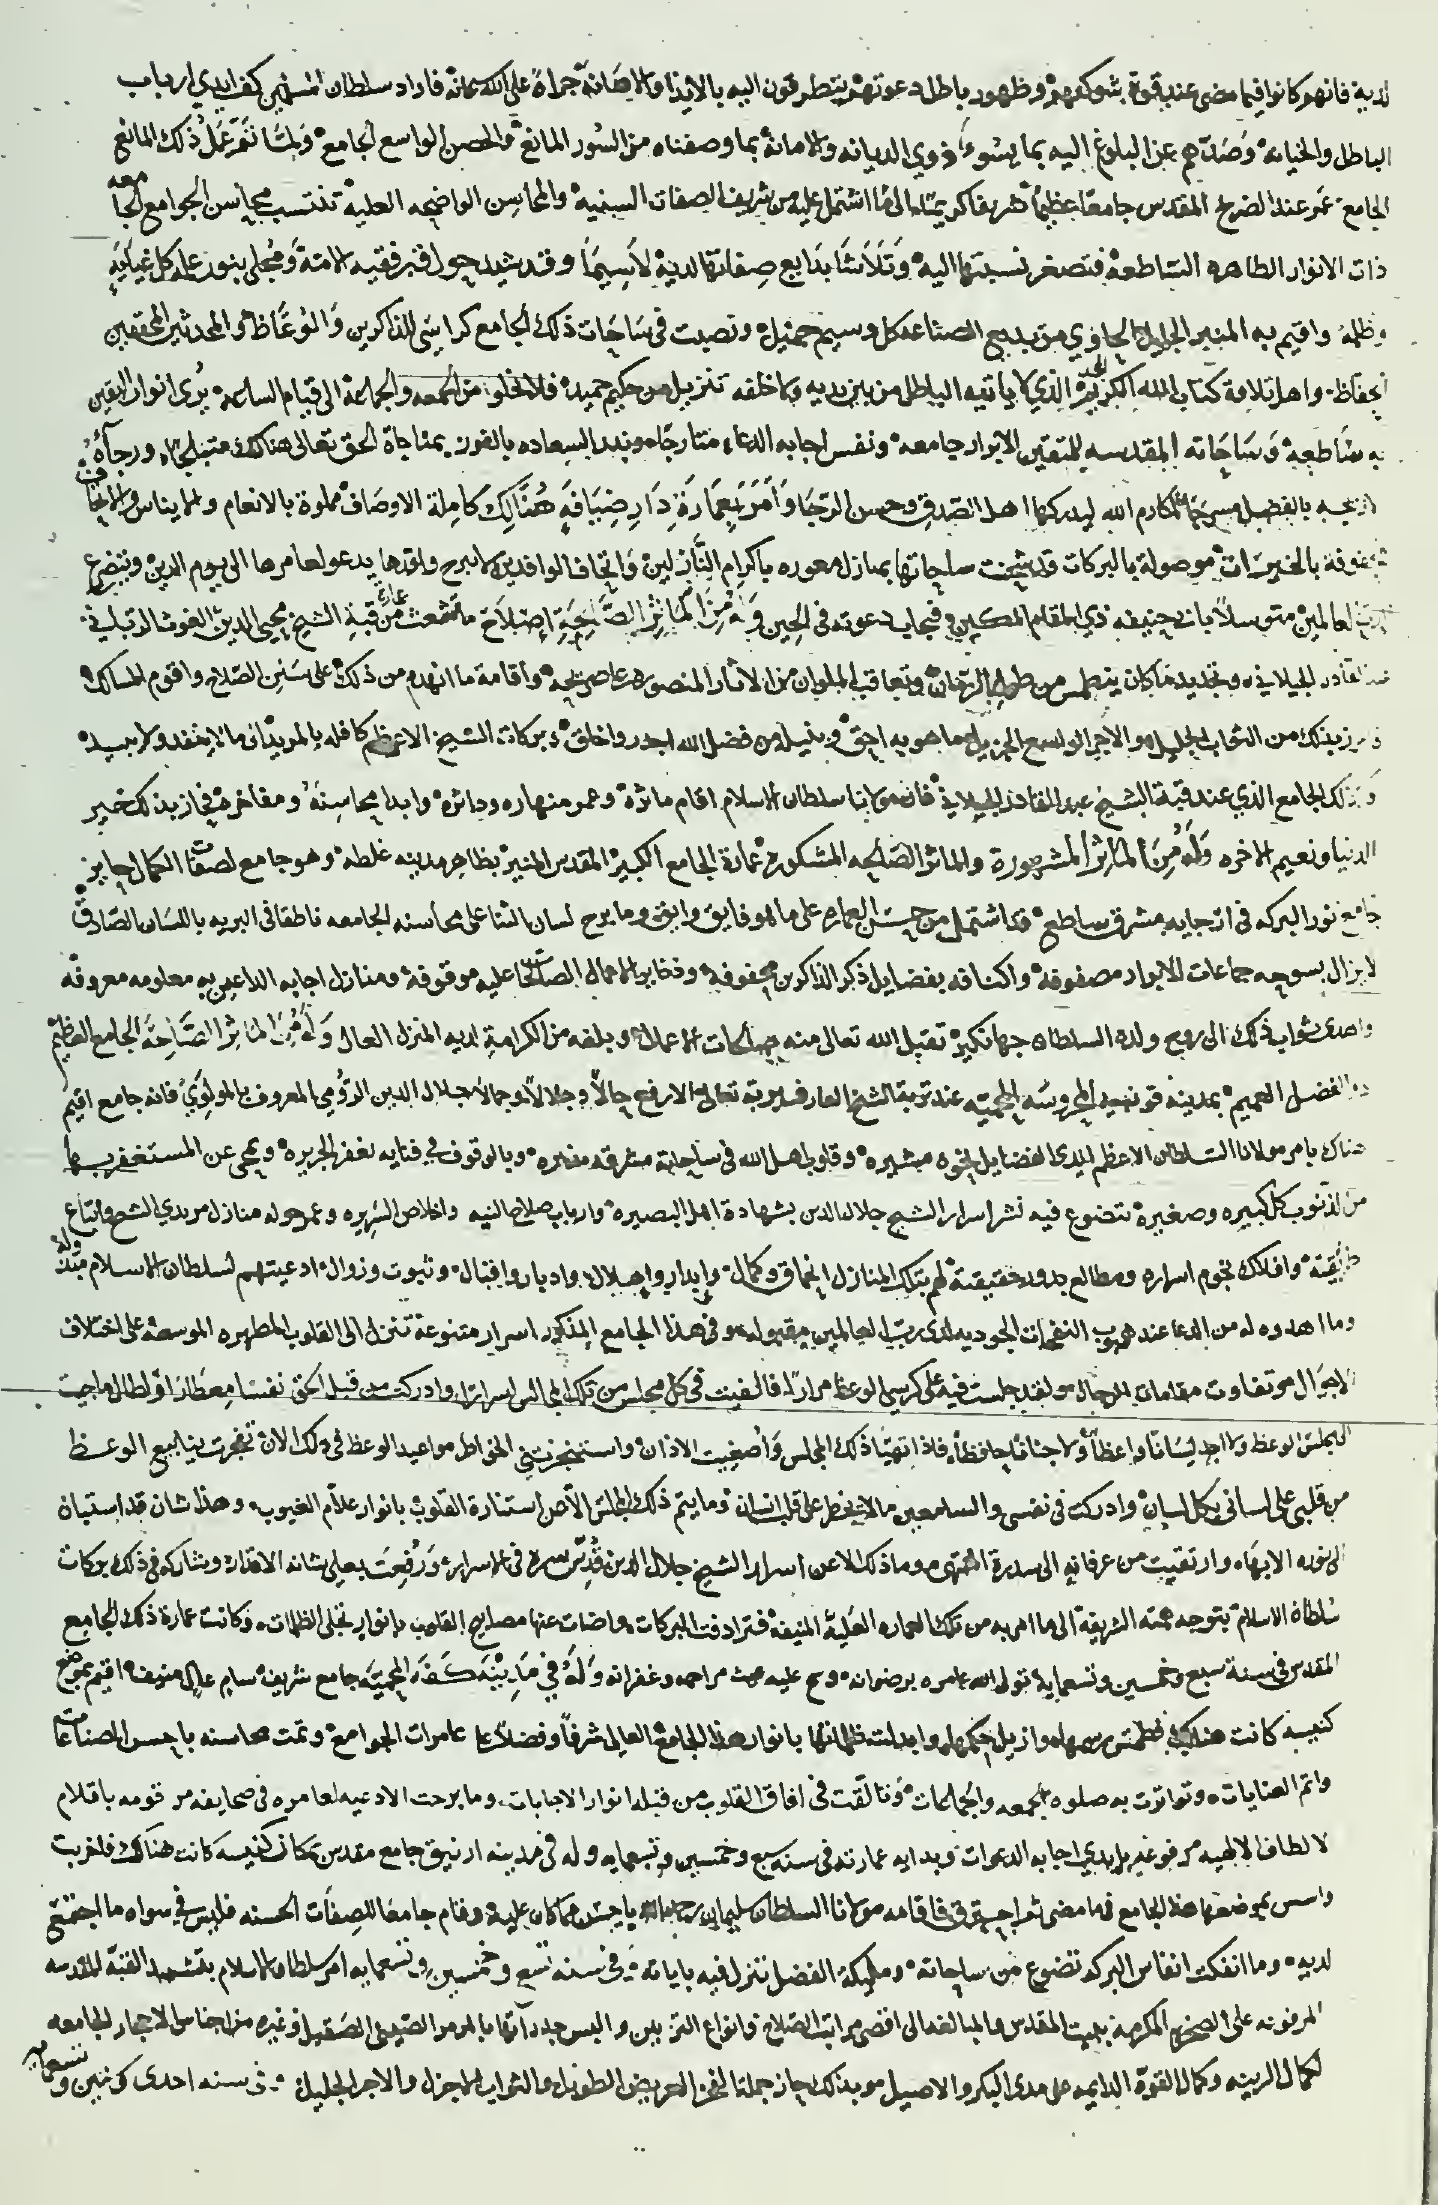 لديه فانهم كانوا فيما مضى عند قوة شوكتهم وظهور باطل دعوتهم يتطرقون اليه بالايذا والاهانة جراة على الله سبحانه فاراد سلطان المسلمين كف ايدي ارباب
الباطل والخيانة وصدهم عن البلوغ اليه بما يسوء ذوي الديانه والامانة بما وصفناه من السور المانع والحصن الواسع الجامع ولما تم عمل ذلك المانع
الجامع عمر عند الضريح المقدس جامعا عظيما شريفا كريما الى ما اشتمل عليه من شريف الصفات السنيه والمحاسن الواضحه العليه تنتسب محاسن الجوامع الجامعه
ذات الانوار الطاهره الساطعة فتصغر نسبتها اليه وتتلاشا بدايع صفاتها لديه لاسيما وقد شيد حول قبر فقيه الامة ومجلي بنور علمه كل غياية
وظلمة واقيم به المنبر الجليل الحاوي من بديع الصناعه كل وسيم جميل ونصبت في ساحات ذلك الجامع كراسي للذاكرين والوعاظ والمحدثين المحققين
الحفاظ واهل تلاوة كتاب الله الكريم المجيد الذي لا ياتيه الباطل من بين يديه ولا خلفه تنزيل من حكيم حميد فلا تخلو من الجمعه والجماعة الى قيام الساعه يرى انوار اليقين
به ساطعة وساحاته المقدسه للمتقين الابرار جامعه ونفس اجابه الدعاء متارجا وبدر السعاده بالفوز بمناجاة الحق تعالى هناك متبلجا ورجآؤه
بالفضل مسرجا مكارم الله ليدركها اهل الصدق وحسن الرجا وامر بعمارة دار ضيافة هنالك كاملة الاوصاف مملوة بالانعام والايناس والاتحاف
محفوفة بالخيرات موصولة بالبركات قد شحنت ساحاتها بمنازل معموره باكرام النازلين واتحاف الوافدين لا تبرح وفودها يدعو لعامرها الى يوم الدين ويتضرع
لرب العالمين متوسلا بابي حنيفه ذي المقام المكين فيجاب دعوته في الحين وله من المآثر الصالحية اصلاح ما تشعث من عمارة قبة الشيخ محيي الدين الغوث الرباني
عبد القادر الجيلاني وتجديد ما كان ينطمس من طول الزمان وتعاقب الملوان من الاثار المنصوره واقامة ما انهدم من ذلك على سنن الصلاح واقوم المسالك
بذلك من الثواب الجليل والاجر الواسع الجزيل ما هو به احق وبنيله من فضل الله اجدر واخلق وبركات الشيخ الاعظم كافله بالمزيد اني مالا ينفد ولا يبيد
وكذلك الجامع الذي عند قبة الشيخ عبد القادر الجيلاني فان مولانا سلطان الاسلام اقام ماثره وعمر منهاره وداثره وابدا محاسنه ومفاخره فحاز بذلك خير
الدنيا ونعيم الاخره وله من المآثر المشهورة والماثر الصالحه المشكوره عمارة الجامع الكبير المقدس المنير بظاهر مدينه غلطه وهو جامع لصفات الكمال حايز
جامع نور البركه في ارجايه مشرق ساطع قد اشتمل من حسن العماره على ما هو فايق وابق وما برح لسان الثنا على محاسنه الجامعه ناطقا في البريه باللسان الصادق
لا يزال بسوحه جماعات الابرار مصفوفة واكنافه بفضايل ذكر الذاكرين محفوفة وذخاير الاعمال الصالحات عليه موقوفة ومنازل اجابه الداعين به معلومه معروفه
واهدى ثواب ذلك الى روح ولده السلطان جهانكير تقبل الله تعالى منه صالحات الاعمال وبلغه من الكرامة لديه المنزل العال وله من المآثر الصالحة الجامع العظيم
ذو الفضل العميم بمدينة قونيه المحروسه المحميه عند تربة الشيخ العارف بربه تعالى الارفع حالا وجلالا وجمالا جلال الدين الرومي المعروف بالمولوي فانه جامع اقيم
هناك بامر مولانا السلطان الاعظم لمبدي الفضايل نجومه مشيره وقلوب اهل الله في ساحاته مشرقه منيره وبالوقوف في فنايه تغفر الجريره ويمحى عن المستغفر بها
من الذنوب كل كبيره وصغيره تتضوع فيه نشر اسرار الشيخ جلال الدين بشهادة اهل البصيره وارباب صلاح النيه واخلاص السريره وعمر حوله منازل مريدي الشيخ واتباع
طريقته وافلاك نجوم اسراره ومطالع بدور حقيقته لهم بتلك المنازل انمحاق وكمال وابدار واهلال وادبار واقبال وثبوت وزوال ادعيتهم لسلطان الاسلام مبذوله
وما اهدوه له من الدعا عند هبوب النفحات الجوديه لدى رب العالمين مقبوله وفي هذا الجامع المذكور اسرار متنوعة تنزل الى القلوب المطهره الموسعة على اختلاف
الاحوال وتفاوت مقامات الرجال ولقد جلست فيه على كرسي الوعظ مرارا فالفيت في كل مجلس من تلك المجالس اسرارا وادركت من قبل الحق نفسا معطارا ولطالما جيت
المجلس الوعظ ولا اجد لسانا واعظا ولا جنانا حافظا فاذا تهيا ذلك المجلس واصغيت الاذان واستنجزتني الخواطر مواعيد الوعظ في ذلك الان تفجرت ينابيع الوعظ
من قلبي على لساني بكل لسان وادركت في نفسي والسامعين مالا يخطر على قلب انسان وما يتم ذلك المجلس الا عن استنارة القلوب بانوار علام الغيوب وهذا شان قد استبان
لي نوره الابهاء وارتقيت من عرفانه الى سدرة المنتهى وما ذلك الا عن اسرار الشيخ جلال الدين قدس سره في الاسرار ورفعت بعلي شانه الاقدار وشاركه في ذلك بركات
سلطان الاسلام بتوجه همته الشريفة الى ما امر به من تلك العماره العلية المنيفة فترادفت البركات واضات عنها مصابيح القلوب بانوار تجلى الظلمات وكانت عمارة ذلك الجامع
المقدس في سنة سبع وخمسين وتسعماية تولى الله عامره برضوانه وسح عليه غيث مراحمه وغفرانه وله في مدينة كفه المحمية جامع شريف سام عال منيف اقيم بموضع
كنيسه كانت هنالك فطمس رسمها وازيل حكمها وابدلت ظلماتها بانوار هذا الجامع العالي شرفا وفضلا على عامرات الجوامع وتمت محاسنه باحسن الصناعات
واتم العنايات وتواترت به صلوه الجمعه والجماعات وتالقت في افاق القلوب من قبله انوار الاجابات وما برحت الادعيه لعامره في صحايفه مرقومه باقلام
الالطاف الالهيه مرفوعه بايدي اجابه الدعوات وبدايه عمارته في سنه سبع وخمسين وتسعمايه وله في مدينه ازنيق جامع مقدس بمكان كنيسه كانت هناك فاخربت
واسس بموضعها هذا الجامع فيما مضى ثم احترق فاقامه مولانا السلطان سليمان رحمه الله باحسن مما كان عليه وقام جامعا للصفات الحسنه فليس في سواه ما اجتمع
لديه وما انفكت انفاس البركه تضوع من ساحاته وملايكة الفضل تنزل فيه باياته وفي سنه تسع وخمسين وتسعمايه امر سلطان الاسلام بتشييد القبة المقدسه
المرفوعه على الصخره المكرمه ببيت المقدس والمبالغه الى اقصى مراتب الصلاح وانواع التزيين والبس جدرآنها بالمرمر الصقيل وغيره من اجناس الاحجار الجامعه
لكمال الزينه وكمال القوة الدايمه على مدى البكر والاصيل وبذلك حاز جملة الفخر العريض الطويل والثواب المجزل والاجر الجليل وفي سنه احدى وستين وتسعمايه